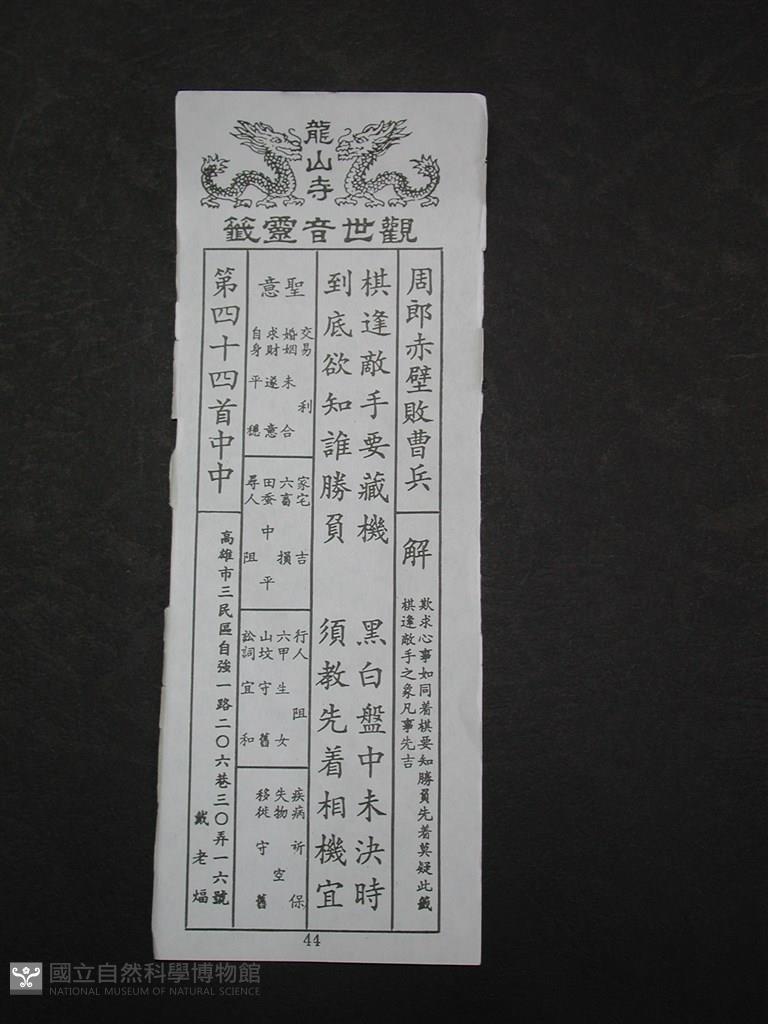 龍山寺
觀世音靈籤
周郎赤壁敗曹兵
解
欺求心事如同著棋要知勝負先著莫疑此籤
棋逢敵手之象凡事先吉
棋逢敵手要藏機　黑白盤中未決時
到底欲知誰勝負　須教先着相機宜
聖意
交易　利
婚姻　未合
求財　遂意
自身　平穩
家宅　吉
六畜　損
田蚕　中平
尋人　阻
行人　阻
六甲　生女
山坟　守舊
訟詞　宜和
疾病　祈保
失物　空
移徙　守舊
第四十四首中中
高雄市三民區自強一路二〇六巷三〇弄一六號
戴老煏
44
國立自然科學博物館
NATIONAL MUSEUM OF NATURAL SCIENCE